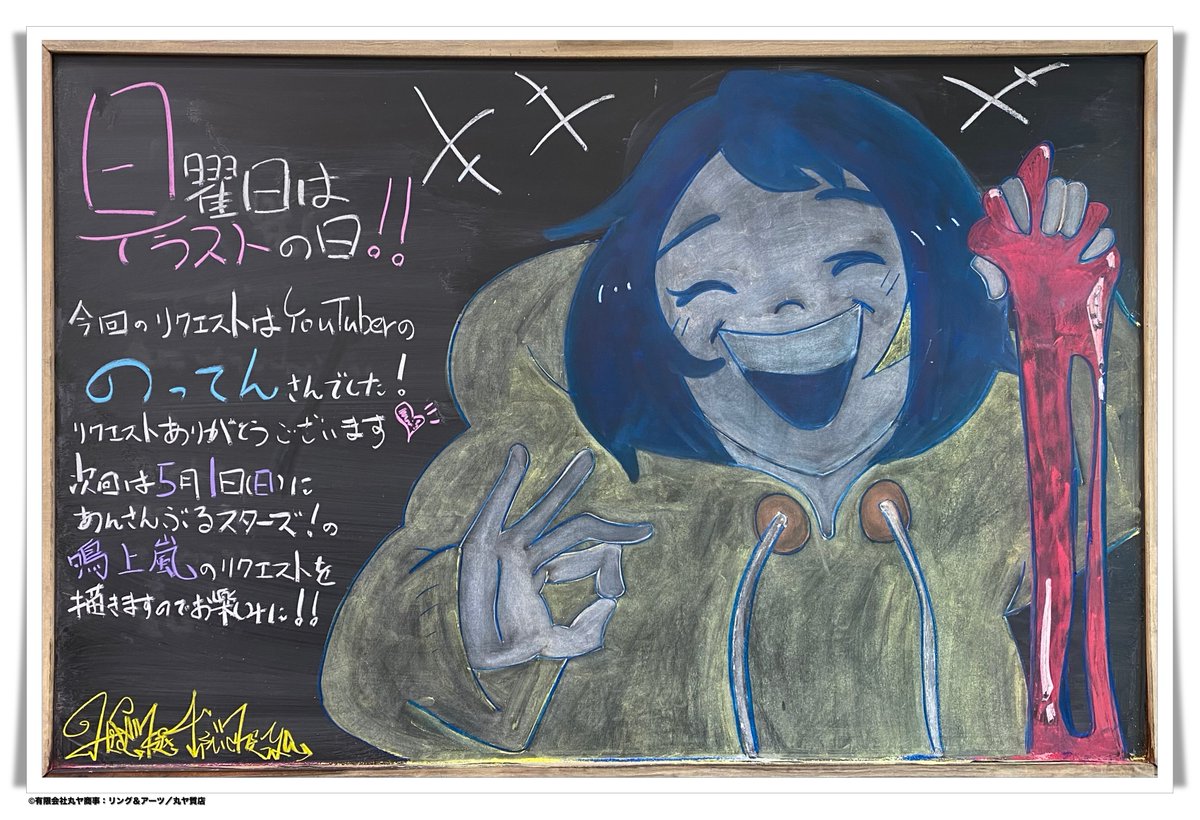 日曜日は
イラストの日!!
今回のリクエストはYouTuberの
のってんさんでした!
リクエストありがとうございます
次回は5月1日(日)に
あんさんぶるスターズ!の
鳴上嵐のリクエストを
描きますのでお楽しみに!!
©有限会社丸ヤ商事：リング＆アーツ／丸ヤ質店